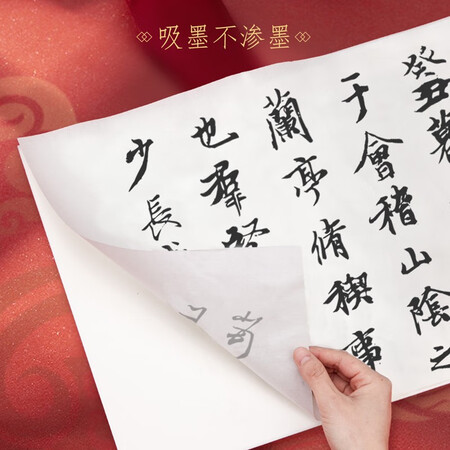 吸墨不渗墨
癸丑暮
于會稽山陰之
蘭亭脩禊事
也羣賢
少長